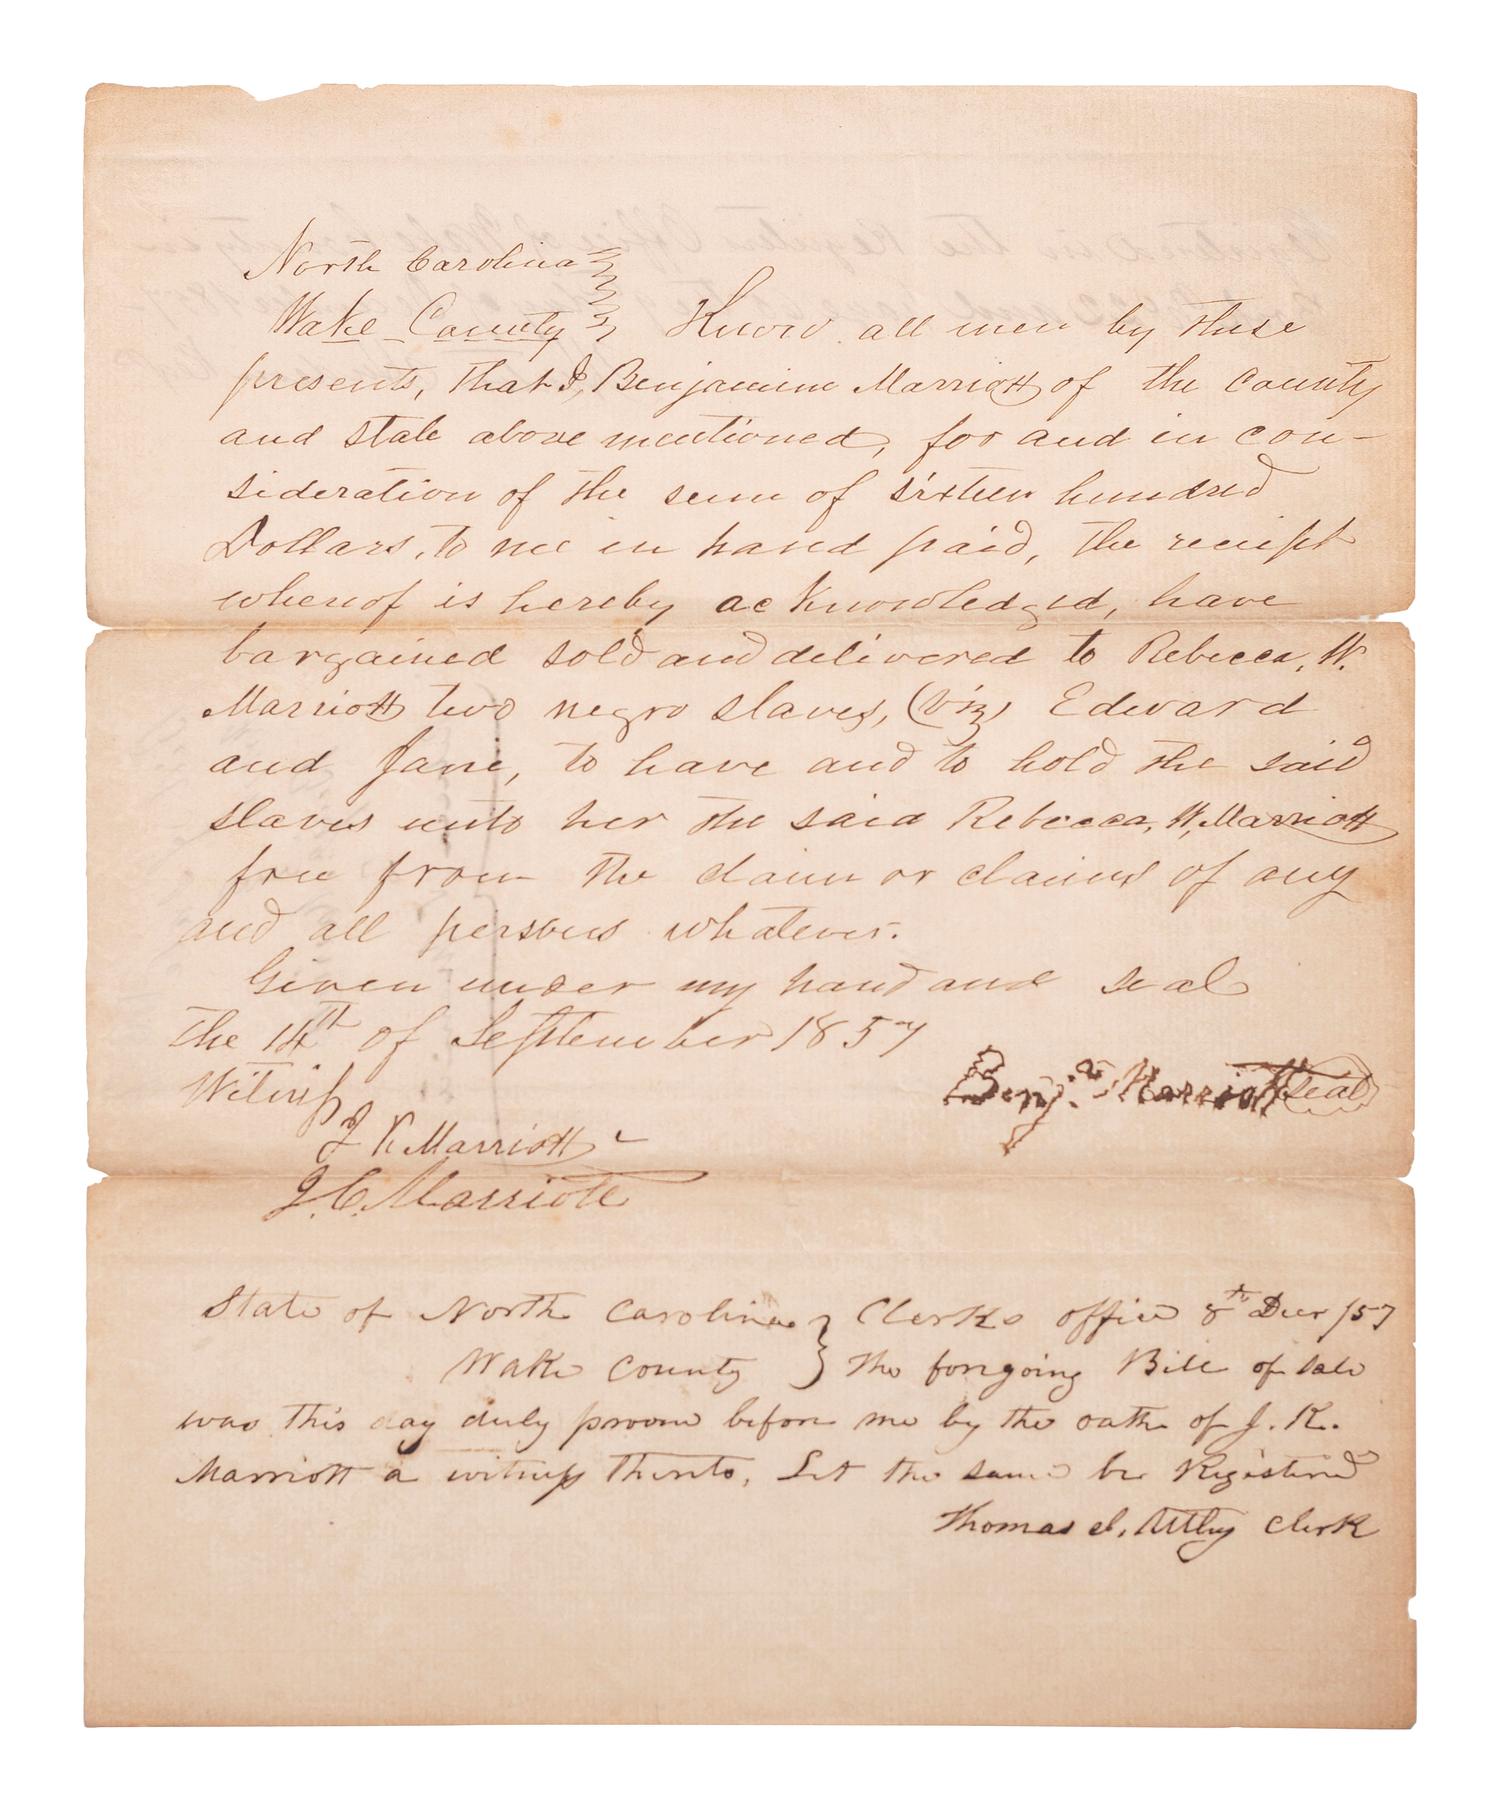 North Carolina
Wake County Know all men by these
presents, that I, Benjamine Marriott of the County
and state above mentioned, for and in con-
sideration of the sum of sixteen hundred
Dollars, to me in hand paid, the receipt
whereof is hereby acknowledged, have
bargained sold and delivered to Rebecca, W.
Marriott two negro slaves, (viz) Edward
and Jane, to have and to hold the said
slaves unto her the said Rebecca, W, Marriott
free from the claim or claims of any
and all persons whatever.
Given under my hand and seal
the 14th of September 1857
Benj. Marriott seal
Witness
J K Marriott
J. C. Marriott
State of North Carolina } Clerks office 8th Decr /57
Wake County } The foregoing Bill of sale
was this day duly proven before me by the oath of J. K.
Marriott a witness thereto, Let the same be Registered
Thomas J. Utley Clerk